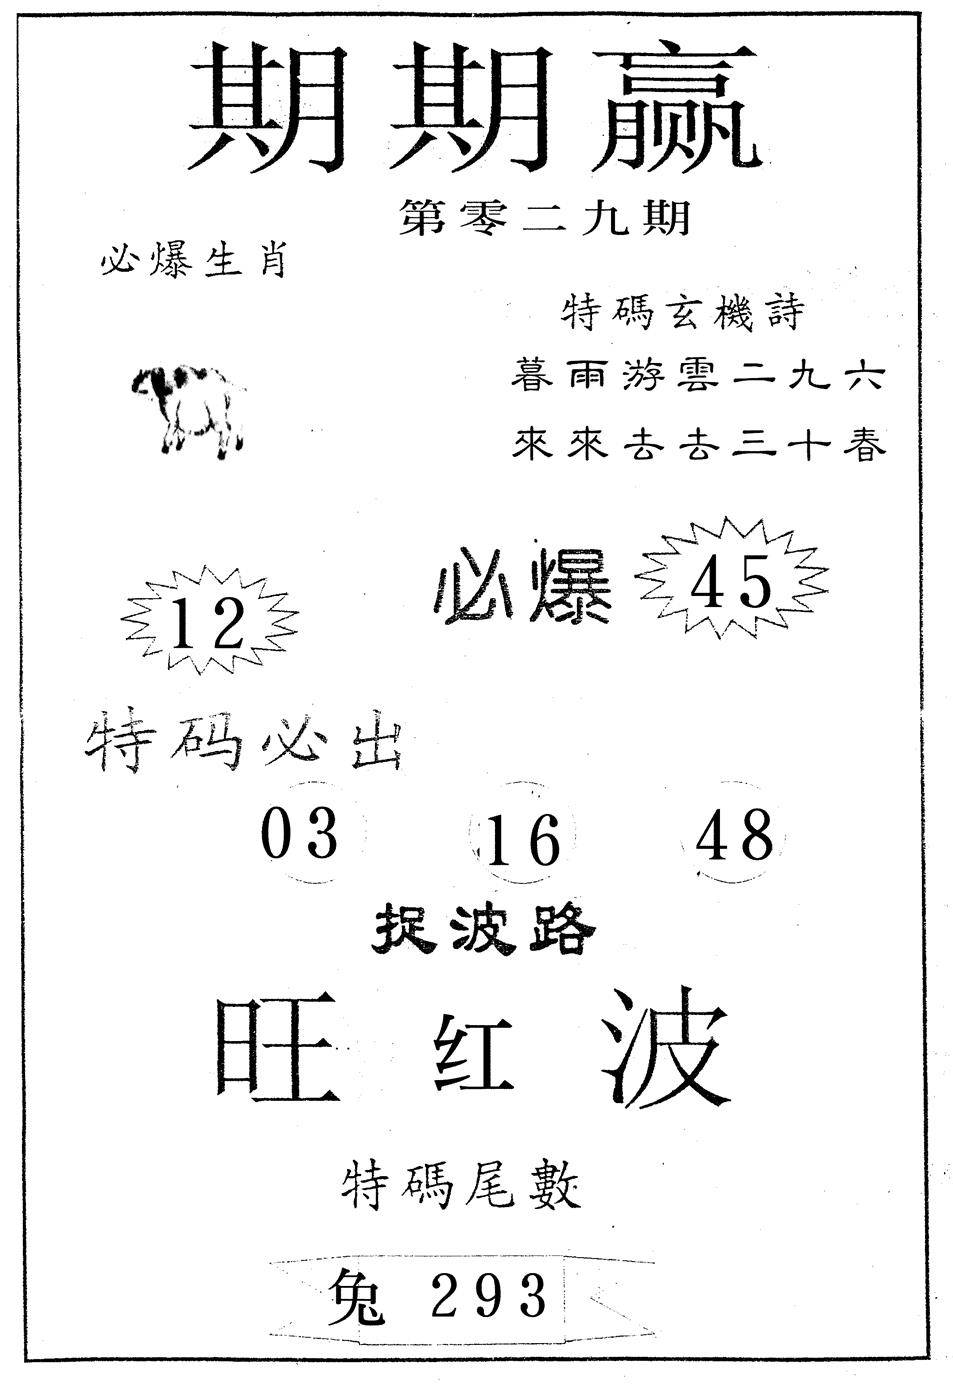 期期赢
第零二九期
必爆生肖
特碼玄機詩
暮雨游雲二九六
來來去去三十春
必爆 45
12
特码必出
03 16 48
捉波路
旺红波
特碼尾數
兔 293